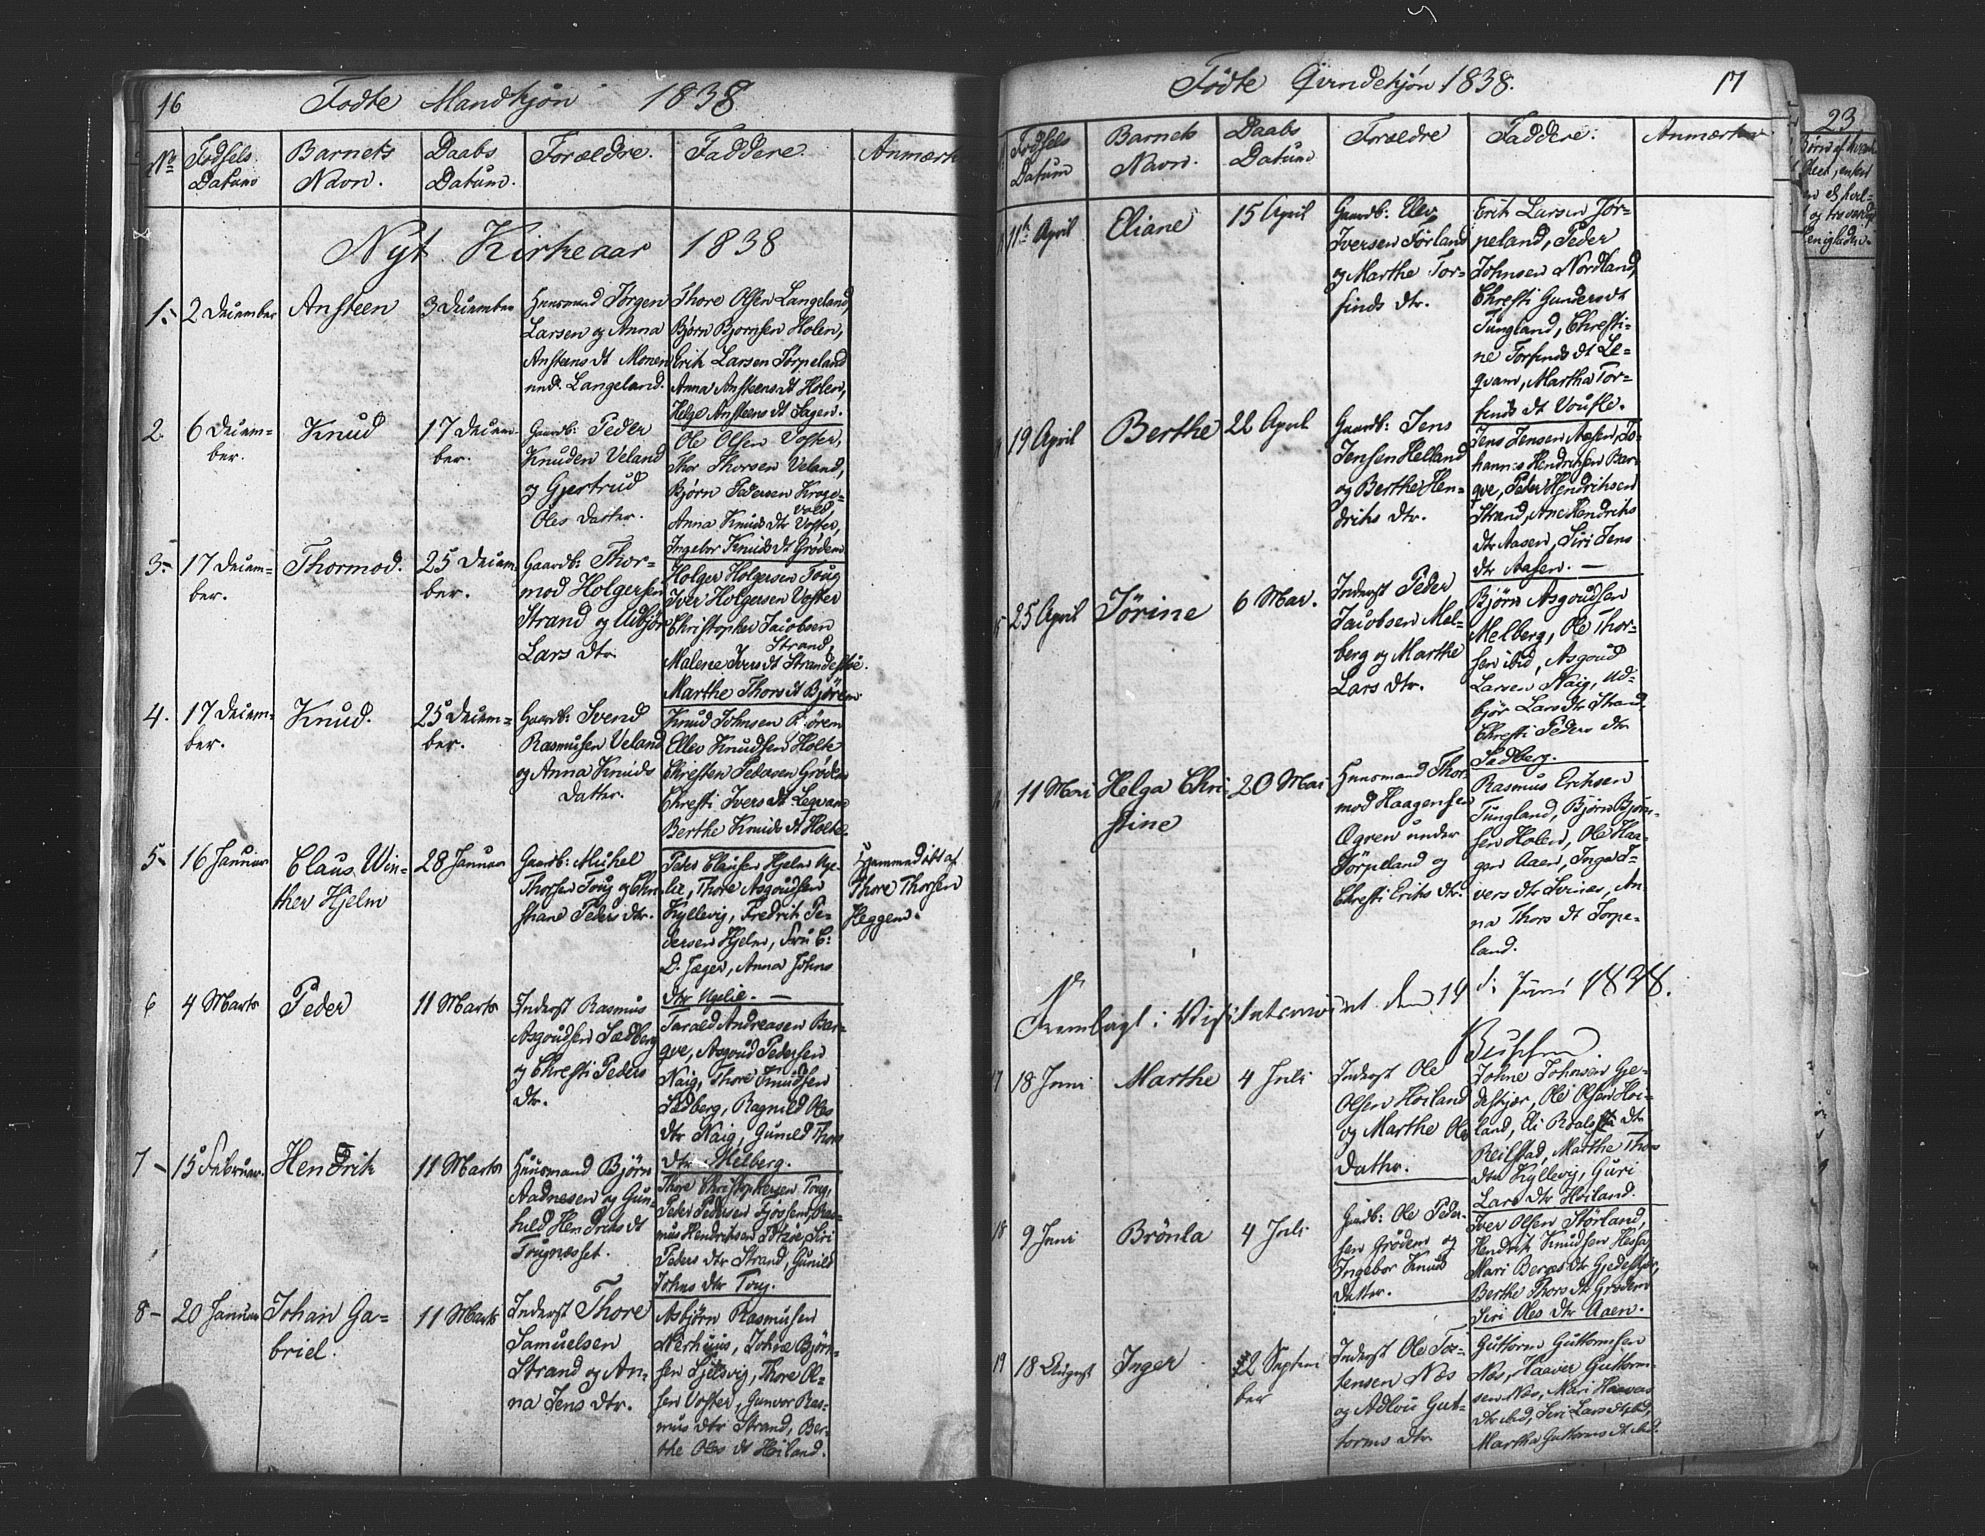 16
Fødte Mandkjøn 1838
No
Fødsels Datum
Barnets Navn.
Daabs Datum.
Forældre.
Faddere.
Anmærk
Nyt Kirkeaar 1838
1. 2 December
Ansteen
3 December
Huusmand Jørgen
Larsen og Anna
Ansteens dt Monen
und. Langeland.
Thore Olsen Langeland,
Bjørn Bjørnsen Holen,
Erik Larsen Tørpeland
Anna Ansteens dt Holen,
Helge Ansteens dt Sagen.
2. 6 Decem-
ber.
Knud
17 Decem-
ber.
Gaardb: Peder
Knudsen Veland
og Gjertrud
Oles Datter.
Ole Olsen Voster,
Thor Thorsen Veland,
Bjørn Pedersen Kroge-
vold,
Anna Knuds dtr Voster,
Ingebor Knuds dt Grødem
3- 17 Decem-
ber.
Thormod.
25 Decem
ber.
Gaardb: Thor-
mod Holgersen
Strand og Udbjør
Lars dtr.
Holger Holgersen Toug
Iver Holgersen Voster
Christopher Jacobsen
Strand,
Malene Ivers dt Strandestøe.
Marthe Thors dt Bjøren
4. 17 Decem-
ber.
Knud.
25 Decem-
ber.
Gaardb: Svend
Rasmusen Veland
og Anna Knuds
Datter.
Knud Johnsen Bjørem
Ellev Knudsen Holte
Christen Pedersen Grødem
Christi Ivers dt Leqvam
Berthe Knuds dt Holte.
5- 16 Januar
Claus Win-
ther Hjelm
28 Januar
Gaardb: Michel
Thorsen Toug og Chri-
stiane Peders dtr.
Peder Clausen Hjelm
Thore Asgoudsen
Kyllevig, Fredrik Pe-
dersen Hjelm, Fru E:
D. Jæger, Anna Johns
dtr
Hjemmedøbt af
Thore Thorsen
Heggem.
6 4 Marts
Peder
11 Marts
Inderst Rasmus
Asgoudsen Sædberg
og Christi Peders
dtr.
Tarald Andreasen Bar-
qve, Asgoud Pedersen
Naig, Thore Knudsen
Sædberg, Ragnild Oles
dtr Naig, Gunild Thors
dtr Melberg.
7 - 15 Februar
Hendrik
11 Marts
Huusmand Bjørn
Aadnesen og Gun-
hild Hendriks dt
Tougnæsset.
Thore Christophersen Toug,
Peder Pedersen
mus Hendriksen
Peders dtr Strand, Gunild
Johns dtr Toug.
8- 20 Januar
Johan Ga-
briel.
11 Marts
Inderst Thore
Samuelsen
Strand og An-
na Jens dtr.
Asbjørn Rasmusen
Nerhuus, Johne Bjørn-
sen Fjelsvig, Thore Ol-
sen Voster, Gunvor Ras-
mus dtr Strand, Ber-
the Oles dt Høiland.
Fødte Qvindekjøn 1838.
17
Fødsels Datum
Barnets Navn.
Daabs Datum
Forældre
Faddere.
Anmærk
11te April
Eliane
15 April
Gaardb: Elev
Iversen Førland
og Marthe Tor-
finds dtr.
Erik Larsen Jør-
peland, Peder
Johnsen Nordland,
Christi Gunders dt
Tungland, Christi-
ne Torfinds dt Le-
qvam, Martha Tor-
finds dt Voufle.
19 April
Berthe
22 April
Gaardb: Jens
Jensen Helland
og Berthe Hen-
driks dtr.
Jens Jensen Aasen, Jo-
hannes Hendriksen Bar-
qve, Peder Hendriksen
Strand, Ane Hendriks
dtr Aasen, Siri Jens
dtr Aasen. —
25 April
Jørine
6 Mai.
Inderst Peder
Jacobsen Mel-
berg og Marthe
Lars dtr.
Bjørn Asgoudsen
Melberg, Ole Thor-
sen ibid, Asgoud
Larsen Naig, Ud-
bjør Lars dtr Strand
Christi Peders dtr
Sædberg.
11 Mai
Helga Chri
stine
20 Mai
Huusmand Thor
mod Haagensen
Øgren under
Jørpeland og
Christi Eriks dtr.
Rasmus Eriksen
Tungland, Bjørn Bjørn-
sen Holen, Ole Haa-
gen Aaen, Inga I-
vers dtr Svines, An-
na Thors dt Jørpe-
land.
Fremlagt i Visitatsmødet den 19 d: Juni 1838.
17 18 Juni
Marthe
4 Juli
Inderst Ole
Olsen Høiland
og Marthe Oles
Datter.
Johne Johnsen Gje-
deskjær, Ole Olsen Hoi-
land, Eli Roalds dtr
Reilstad, Marthe Thors
dtr Kyllevig, Guri
Lars dtr Høiland.
18 9 Juni
Brönla
4 Juli
Gaardb: Ole Peder-
sen Grødem og
Ingebor Knuds
Datter.
Iver Olsen Størland,
Hendrik Knudsen Hesha,
Mari Bernts dtr Gjedeskjær,
Berthe Thors dt Grødem
Siri Oles dtr Aaen.
19 18 August
Inger
22 Septem
ber
Inderst Ole Tor-
stensen Næs
og Adlou Gut-
torms dtr.
Guttorm Guttormsen
Næs, Haaver Guttorm-
sen Næs, Mari Haavers
dtr ibid, Siri Lars dt ibid,
Martha Guttorms dt ibid.
23